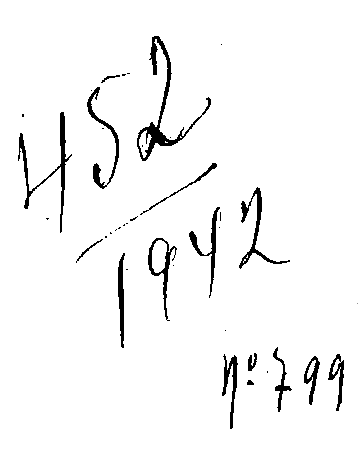 452
1942
nº 799